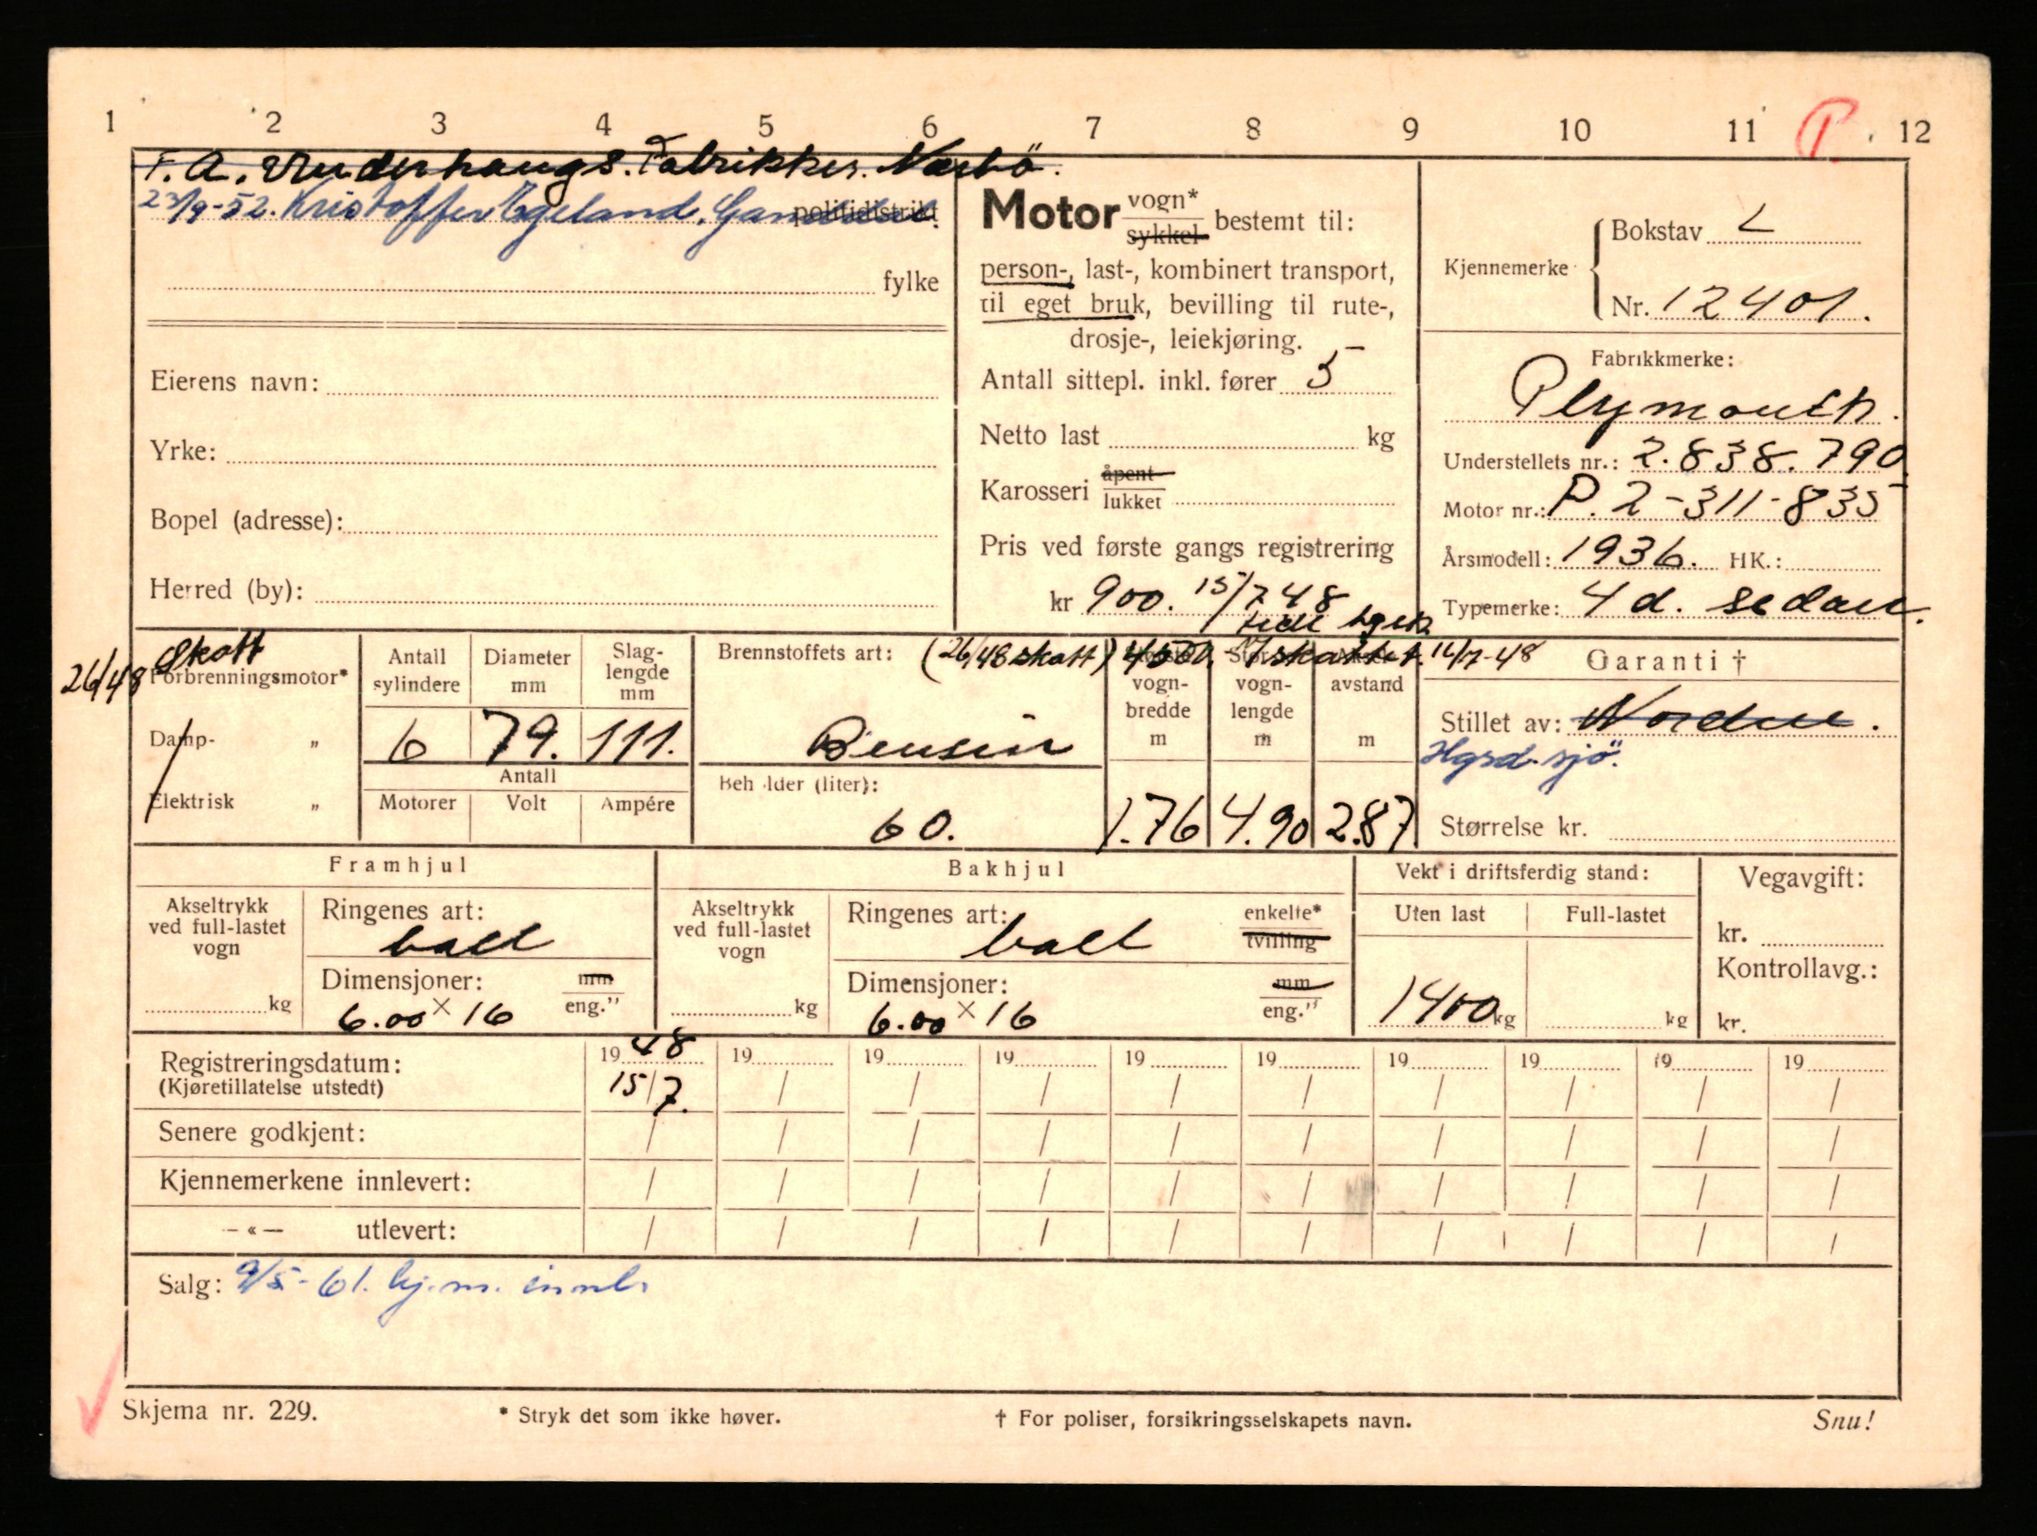 1 2 3 4 5 6 7 8 9 10 11 P 12
Fabrikker. Nærbö.
23/9-52. Kristoffer Egeland. politidistrikt
fylke
Eierens navn:
Yrke:
Bopel (adresse):
Herred (by):
Motor vogn* sykkel bestemt til:
person-, last-, kombinert transport,
til eget bruk, bevilling til rute-,
drosje-, leiekjøring.
Antall sittepl. inkl. fører 5
Netto last kg
Karosseri åpent lukket
Pris ved første gangs registrering
kr 900. 15/7 48
Kjennemerke
Bokstav L
Nr. 12401.
Fabrikkmerke:
Plymouth.
Understellets nr.: 2.838.790
Motor nr.: P.2-311-835
Årsmodell: 1936. HK.:
Typemerke: 4 d. sedan.
Skatt
26/48 Forbrenningsmotor*
Damp- „
Elektrisk „
Antall sylindere
6
Diameter mm
79.
Slag-lengde mm
111.
Antall
Motorer Volt Ampére
Brennstoffets art: (26/48 skatt)
Bensin
Beholder (liter):
60.
vogn-bredde m
1.76
vogn-lengde m
4.90
avstand m
2.87
14/7-48
Garanti †
Stillet av: Norden.
Hgsd-sjö.
Størrelse kr.
Framhjul
Akseltrykk ved full-lastet vogn
kg
Ringenes art:
ball
Dimensjoner: mm eng."
6.00 × 16
Bakhjul
Akseltrykk ved full-lastet vogn
kg
Ringenes art: enkelte* tvilling
ball
Dimensjoner: mm eng."
6.00 × 16
Vekt i driftsferdig stand:
Uten last Full-lastet
1400 kg kg
Vegavgift:
kr.
Kontrollavg.:
kr.
Registreringsdatum: 19 48 19 19 19 19 19 19 19 19 19
(Kjøretillatelse utstedt) 15/7. / / / / / / / / /
Senere godkjent: / / / / / / / / / /
Kjennemerkene innlevert: / / / / / / / / / /
— « — utlevert: / / / / / / / / / /
Salg: 9/5-61. kj.m. innl.
Skjema nr. 229. * Stryk det som ikke høver. † For poliser, forsikringsselskapets navn. Snu!